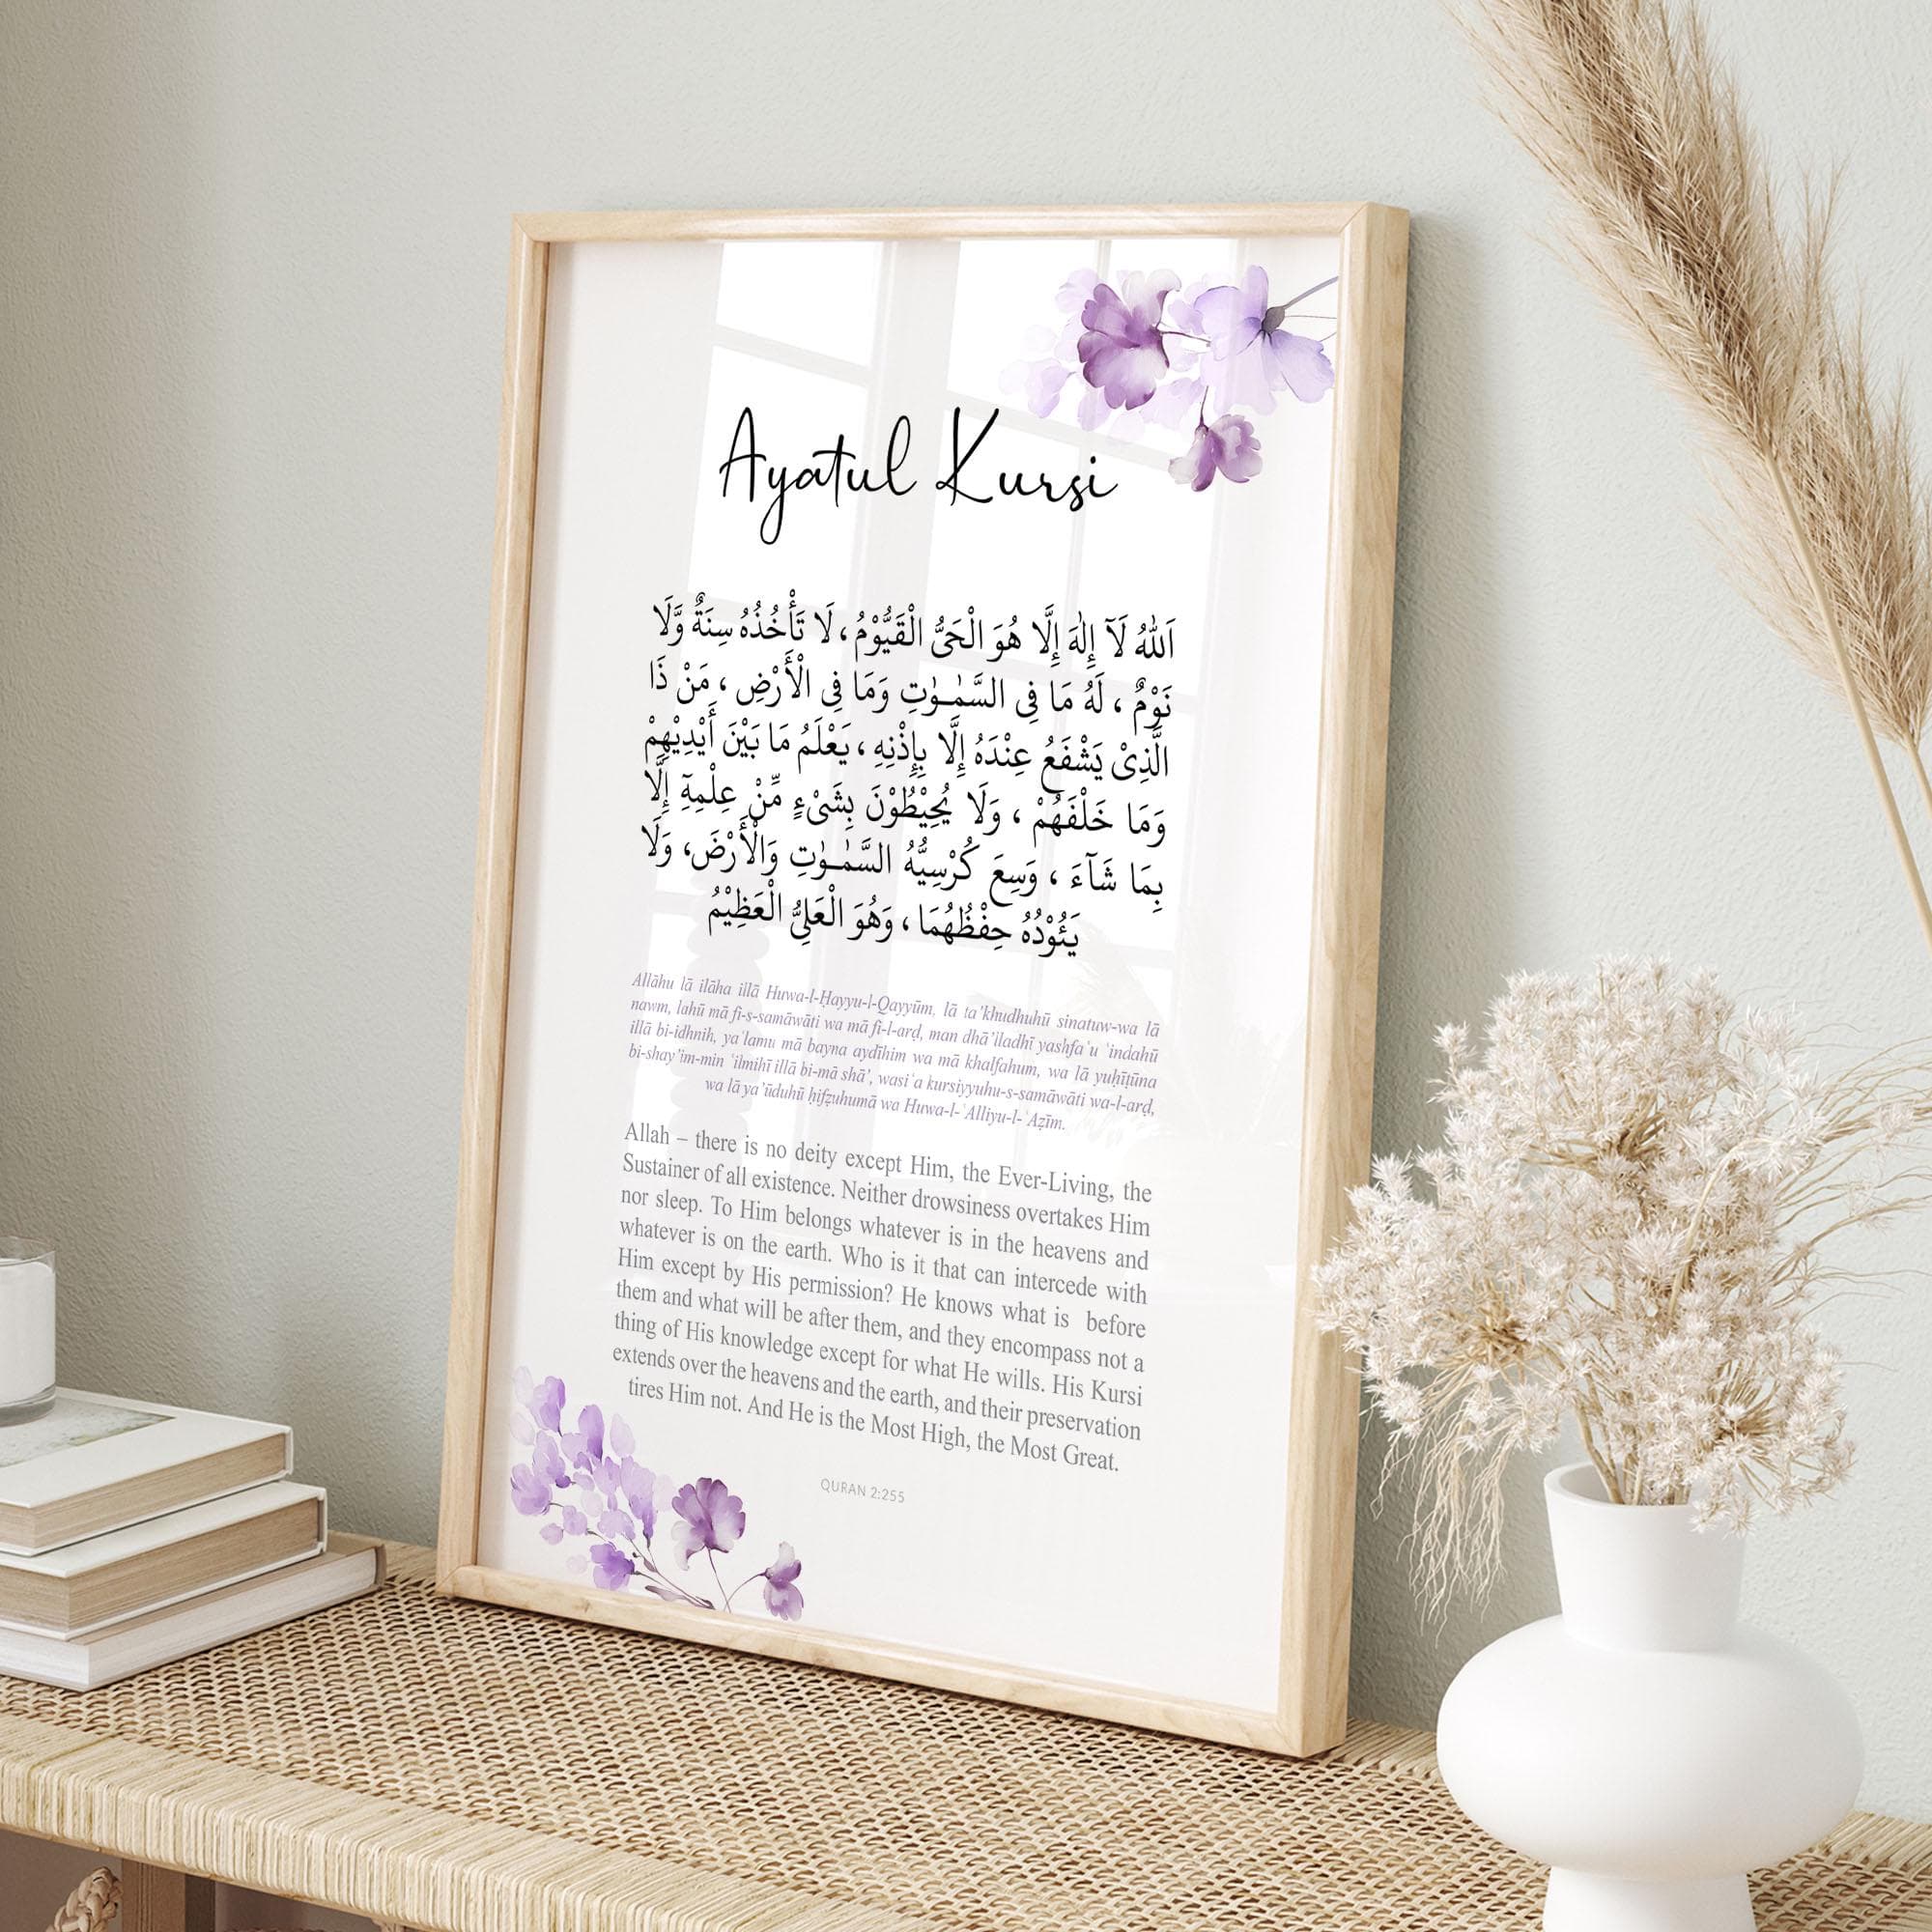 Ayatul Kursi
اَللّٰهُ لَآ إِلٰهَ إِلَّا هُوَ الْحَىُّ الْقَيُّوْمُ ، لَا تَأْخُذُهُ سِنَةٌ وَّلَا
نَوْمٌ ، لَهُ مَا فِى السَّمٰـوٰتِ وَمَا فِى الْأَرْضِ ، مَنْ ذَا
الَّذِىْ يَشْفَعُ عِنْدَهُ إِلَّا بِإِذْنِهِ ، يَعْلَمُ مَا بَيْنَ أَيْدِيْهِمْ
وَمَا خَلْفَهُمْ ، وَلَا يُحِيْطُوْنَ بِشَىْءٍ مِّنْ عِلْمِهٓ إِلَّا
بِمَا شَآءَ ، وَسِعَ كُرْسِيُّهُ السَّمٰـوٰتِ وَالْأَرْضَ، وَلَا
يَئُوْدُهُ حِفْظُهُمَا ، وَهُوَ الْعَلِىُّ الْعَظِيْمُ
Allāhu lā ilāha illā Huwa-l-Ḥayyu-l-Qayyūm, lā ta’khudhuhū sinatuw-wa lā
nawm, lahū mā fi-s-samāwāti wa mā fi-l-arḍ, man dhā’iladhī yashfaʿu ʿindahū
illā bi-idhnih, yaʿlamu mā bayna aydīhim wa mā khalfahum, wa lā yuḥīṭūna
bi-shay’im-min ʿilmihī illā bi-mā shā’, wasiʿa kursiyyuhu-s-samāwāti wa-l-arḍ,
wa lā ya’ūduhū ḥifẓuhumā wa Huwa-l-ʿAlliyu-l-ʿAẓīm.
Allah – there is no deity except Him, the Ever-Living, the
Sustainer of all existence. Neither drowsiness overtakes Him
nor sleep. To Him belongs whatever is in the heavens and
whatever is on the earth. Who is it that can intercede with
Him except by His permission? He knows what is before
them and what will be after them, and they encompass not a
thing of His knowledge except for what He wills. His Kursi
extends over the heavens and the earth, and their preservation
tires Him not. And He is the Most High, the Most Great.
QURAN 2:255